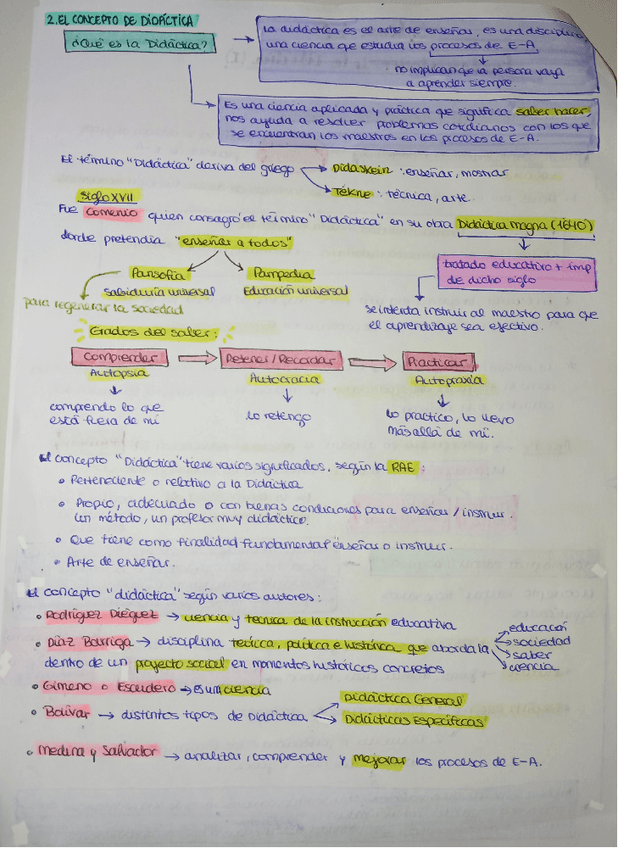 2. EL CONCEPTO DE DIDÁCTICA
¿Qué es la Didáctica?
La didáctica es el arte de enseñar, es una disciplina,
una ciencia que estudia los procesos de E-A
no implican que la persona vaya
a aprender siempre.
Es una ciencia aplicada y práctica que significa saber hacer,
nos ayuda a resolver problemas cotidianos con los que
se encuentran los maestros en los procesos de E-A.
El término "Didáctica" deriva del griego
Didaskein : enseñar, mostrar
Tékne : técnica, arte.
Siglo XVII
Fue Comenio quien consagró el término "Didáctica" en su obra Didáctica magna (1640)
donde pretendía "enseñar a todos"
Pansofía
Sabiduría universal
para regenerar la sociedad
Pampedia
Educación universal
tratado educativo + imp
de dicho siglo
se intenta instruir al maestro para que
el aprendizaje sea efectivo.
Grados del saber:
Comprender
Retener/Recordar
Practicar
Autopsia
Autocracia
Autopraxia
comprendo lo que
está fuera de mí
lo retengo
lo practico, lo llevo
más allá de mí.
El concepto "Didáctica" tiene varios significados, según la RAE :
• Perteneciente o relativo a la Didáctica
• Propio, adecuado o con buenas condiciones para enseñar / instruir.
Un método, un profesor muy didáctico.
• Que tiene como finalidad fundamental enseñar o instruir.
• Arte de enseñar.
El concepto "didáctica" según varios autores :
• Rodríguez Diéguez → ciencia y técnica de la instrucción educativa
• Díaz Barriga → disciplina teórica, política e histórica que aborda la
educación
sociedad
saber
ciencia
dentro de un proyecto social en momentos históricos concretos
• Gimeno o Escudero → es una ciencia
• Bolívar → distintos tipos de Didáctica
Didáctica General
Didácticas Específicas
• Medina y Salvador → analizar, comprender y mejorar los procesos de E-A.